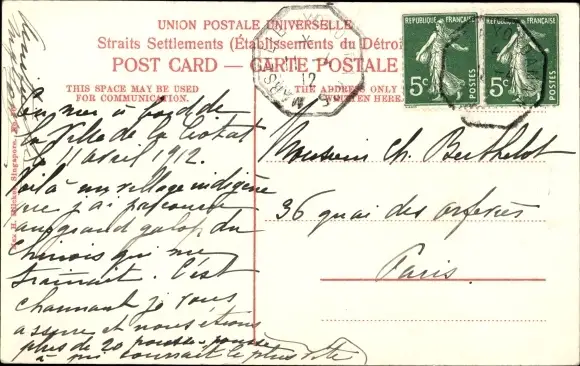 UNION POSTALE UNIVERSELLE
Straits Settlements (Établissements du Détroit
POST CARD — CARTE POSTALE
THIS SPACE MAY BE USED
FOR COMMUNICATION.
THE ADDRESS ONLY
WRITTEN HERE
RÉPUBLIQUE FRANÇAISE
5c
POSTES
RÉPUBLIQUE FRANÇAISE
5c
POSTES
12
En mer à bord de
la Ville de la Ciotat
11 avril 1912.
Voilà un village indigène
que j'ai parcouru
au grand galop du
Chinois qui me
trainait. C'est
charmant je vous
assure et nous étions
plus de 20 pousse-pousse
à qui courrait le plus vite
Monsieur Ch. Berthelot
36 quai des orfèvres
Paris.
Singapore.